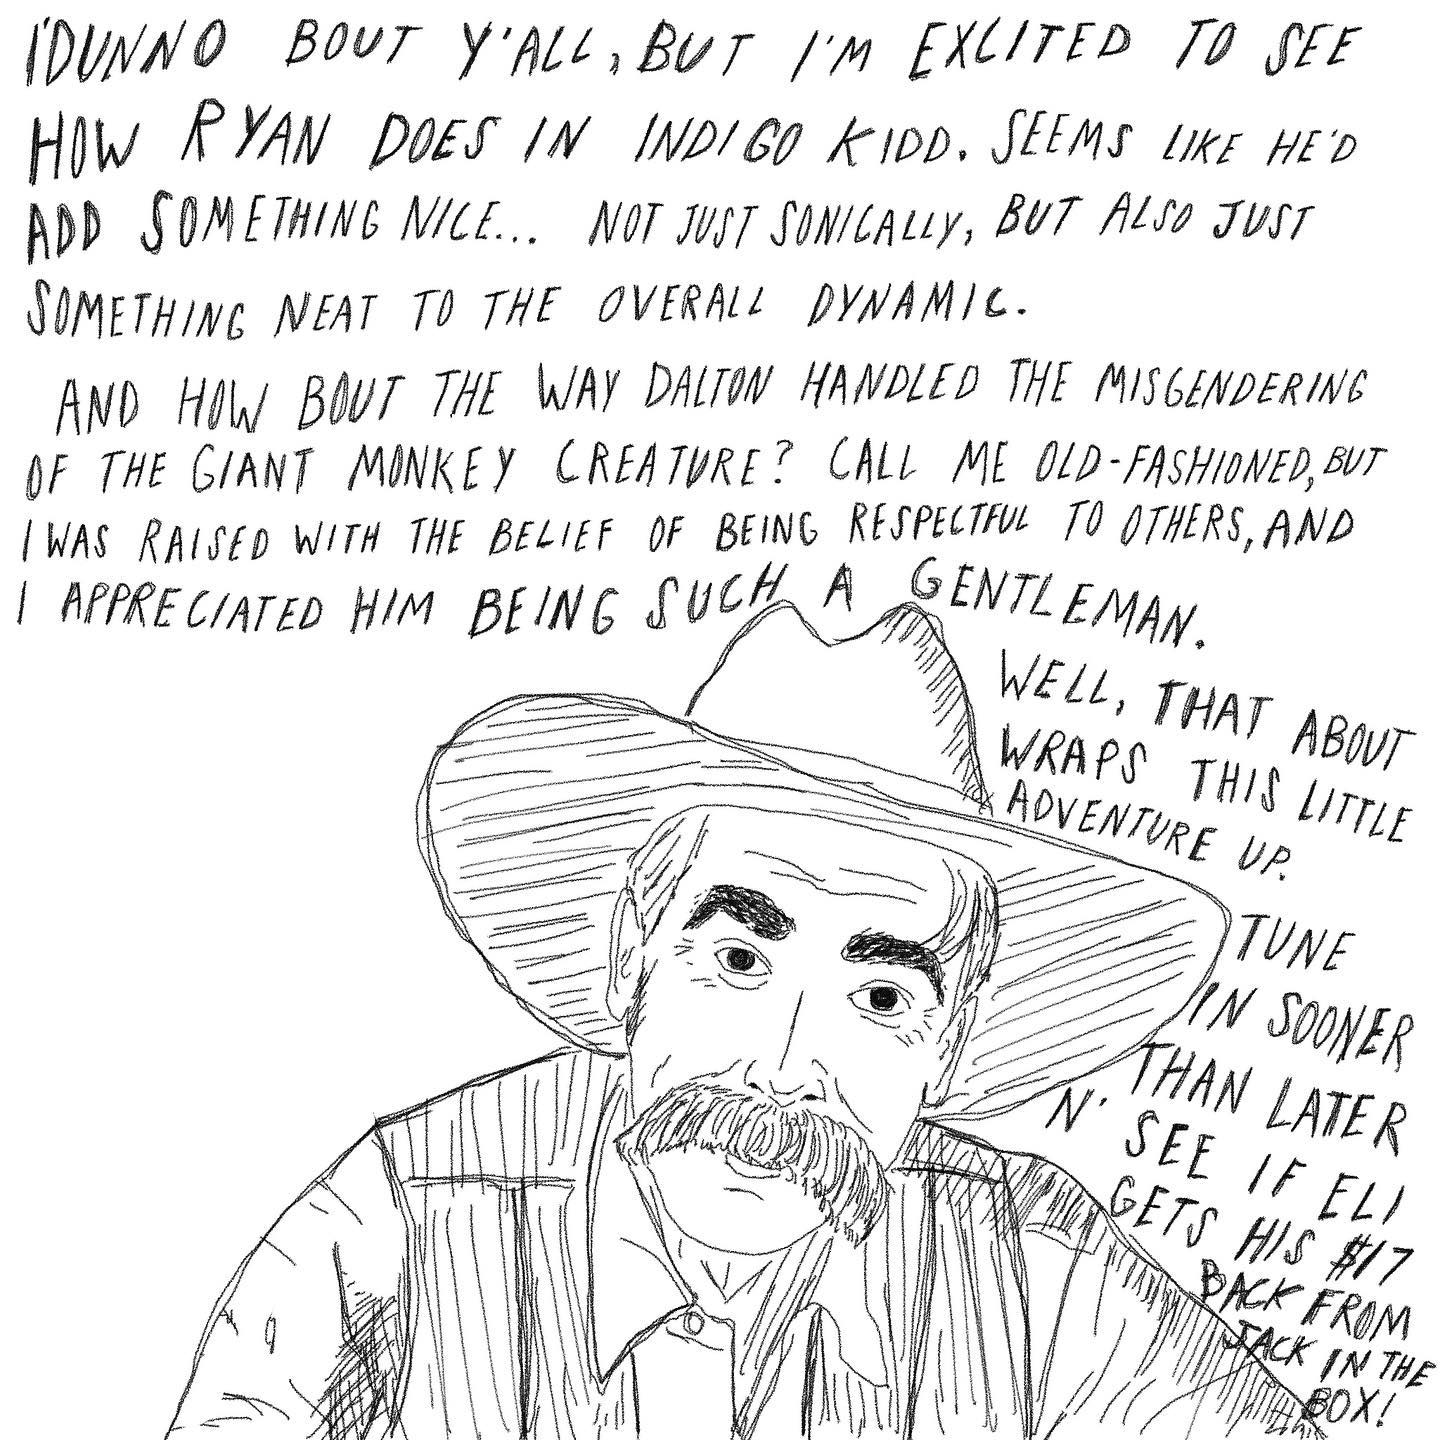 I'DUNNO BOUT Y'ALL, BUT I'M EXCITED TO SEE
HOW RYAN DOES IN INDIGO KIDD. SEEMS LIKE HE'D
ADD SOMETHING NICE... NOT JUST SONICALLY, BUT ALSO JUST
SOMETHING NEAT TO THE OVERALL DYNAMIC.
AND HOW BOUT THE WAY DALTON HANDLED THE MISGENDERING
OF THE GIANT MONKEY CREATURE? CALL ME OLD-FASHIONED, BUT
I WAS RAISED WITH THE BELIEF OF BEING RESPECTFUL TO OTHERS, AND
I APPRECIATED HIM BEING SUCH A GENTLEMAN.
WELL, THAT ABOUT
WRAPS THIS LITTLE
ADVENTURE UP.
TUNE
IN SOONER
THAN LATER
N' SEE IF ELI
GETS HIS $17
BACK FROM
JACK IN THE
BOX!